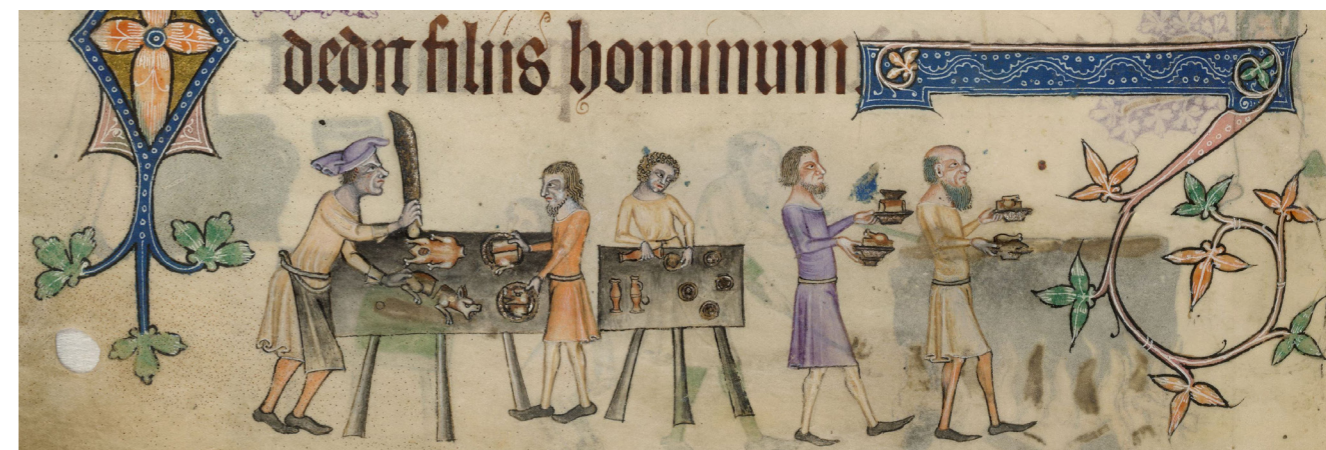 dedit filiis hominum.